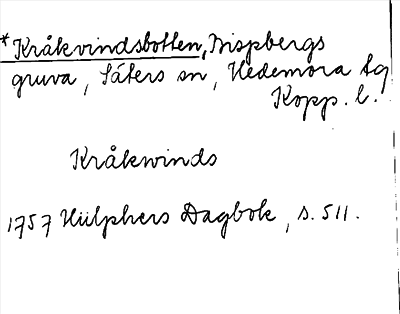 *Kråkvindsbotten, Bispbergs
gruva, Säters sn, Hedemora tg
Kopp. l.
Kråkwinds
1757 Hülphers Dagbok, s. 511.